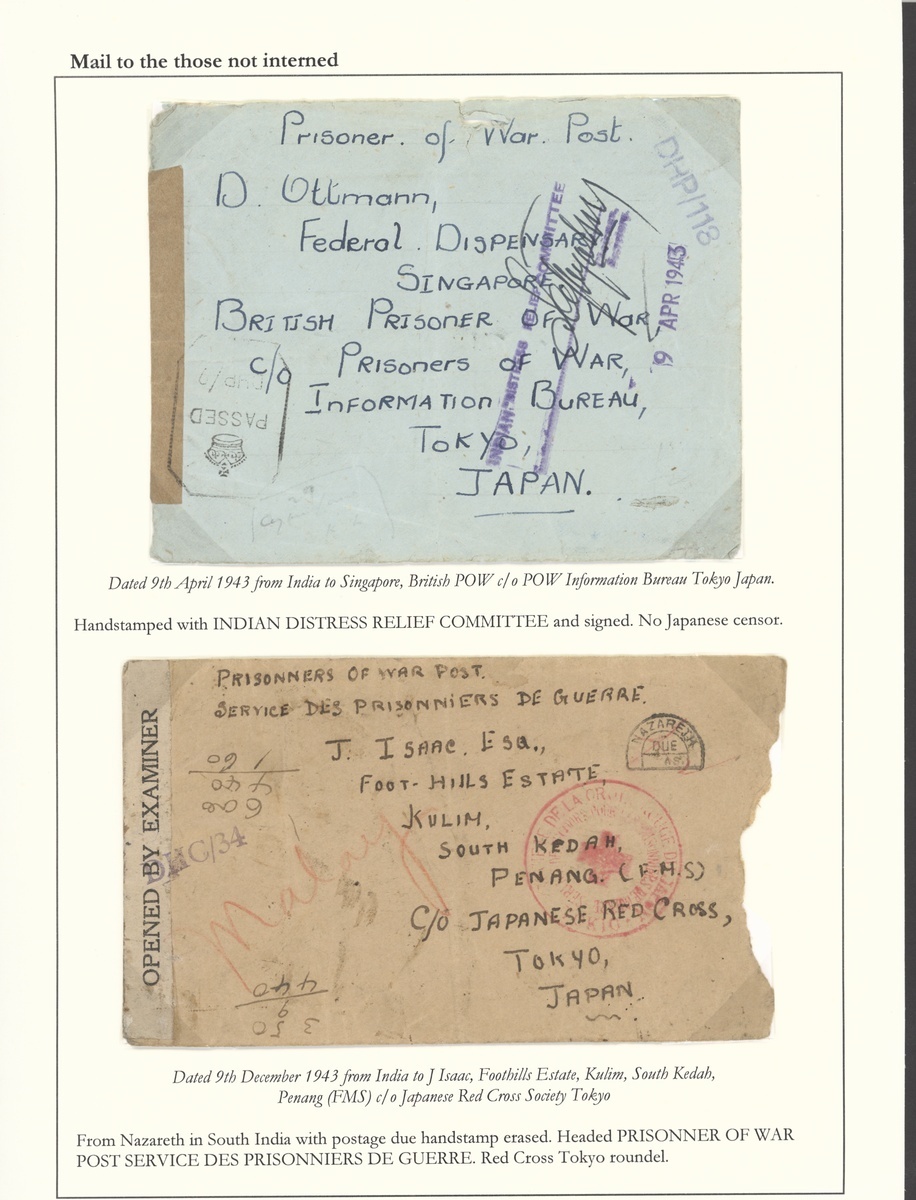 Mail to the those not interned
Prisoner. of War. Post.
D. Ottmann,
Federal. Dispensary
Singapore
British Prisoner of War
c/o Prisoners of War,
Information Bureau,
Tokyo,
JAPAN.
INDIAN DISTRESS RELIEF COMMITTEE
DHP/118
9 APR 1943
PASSED
Dated 9th April 1943 from India to Singapore, British POW c/o POW Information Bureau Tokyo Japan.
Handstamped with INDIAN DISTRESS RELIEF COMMITTEE and signed. No Japanese censor.
PRISONNERS OF WAR POST.
SERVICE DES PRISONNIERS DE GUERRE.
J. ISAAC. ESQ.,
FOOT-HILLS ESTATE,
KULIM,
SOUTH KEDAH,
PENANG. (F.M.S)
C/O JAPANESE RED CROSS,
TOKYO,
JAPAN
OPENED BY EXAMINER
DHC/34
NAZARETH
DUE
Malay
Dated 9th December 1943 from India to J Isaac, Foothills Estate, Kulim, South Kedah,
Penang (FMS) c/o Japanese Red Cross Society Tokyo
From Nazareth in South India with postage due handstamp erased. Headed PRISONNER OF WAR
POST SERVICE DES PRISONNIERS DE GUERRE. Red Cross Tokyo roundel.